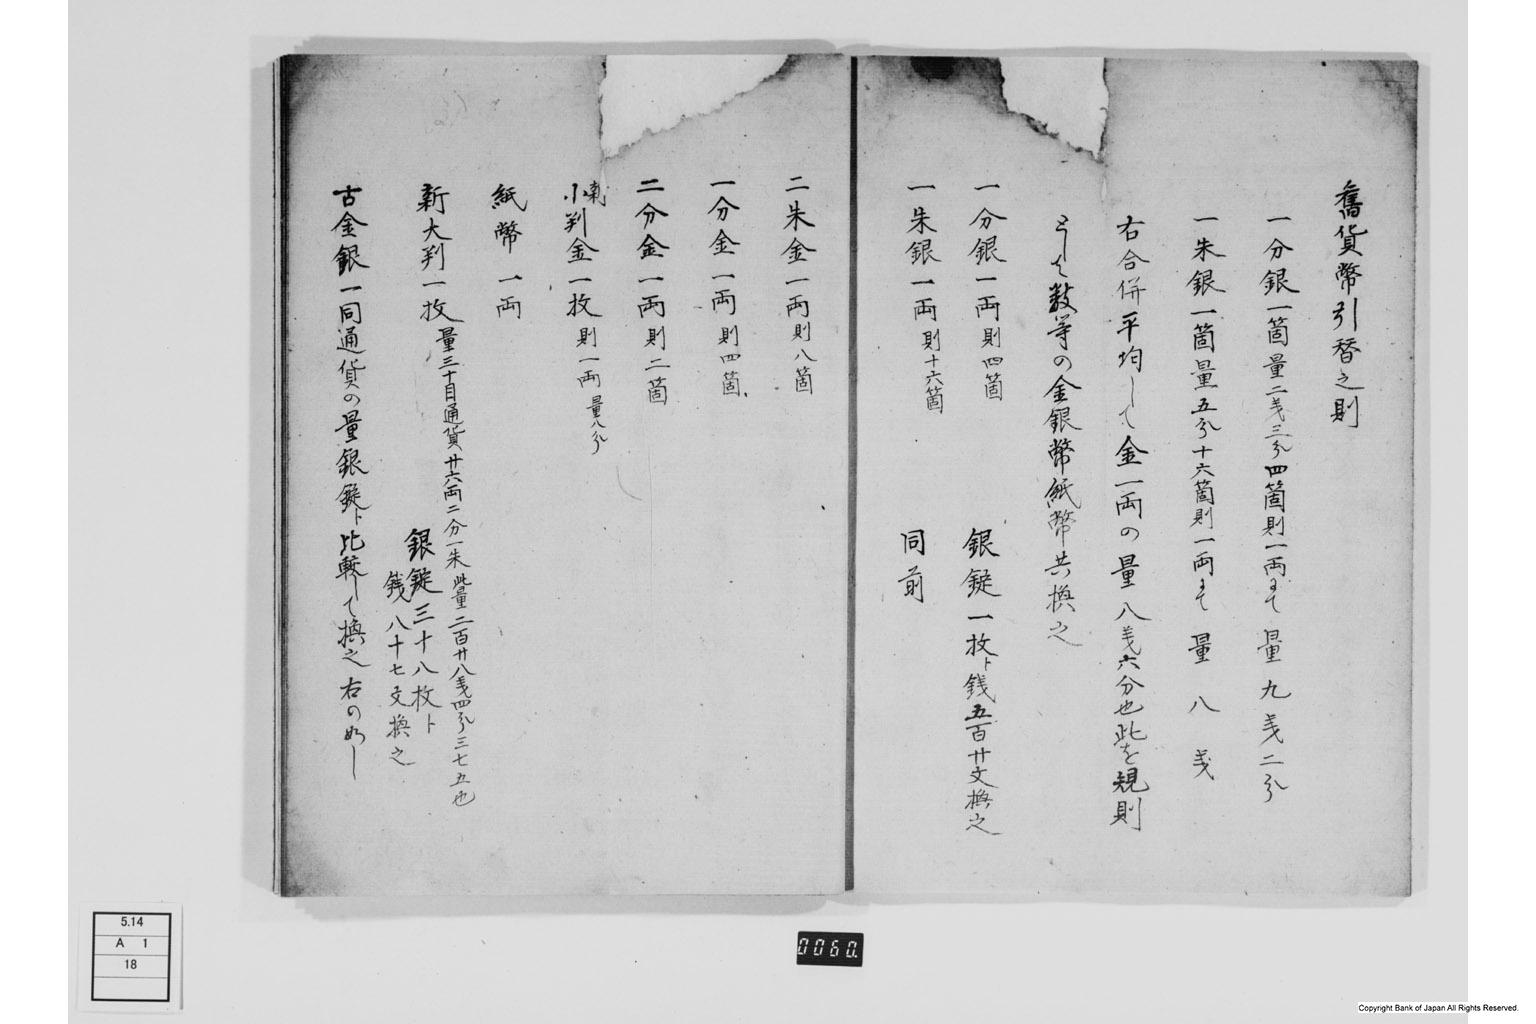 舊貨幣引替之則
一分銀一箇量二戔三分四箇則一両ニて量九戔二分
一朱銀一箇量五分十六箇則一両ニて量八戔
右合併平均して金一両の量八戔六分也此を規則
として数等の金銀幣紙幣共換之
一分銀一両則四箇 銀錠一枚ト銭五百廿文換之
一朱銀一両則十六箇 同前
二朱金一両則八箇
一分金一両則四箇
二分金一両則二箇
小判金一枚則一両量八分
紙幣一両
新大判一枚量三十目通貨廿六両二分一朱此量二百廿八戔四分三七五也
銀錠三十八枚ト
銭八十七文換之
古金銀一同通貨の量銀錠ト比較して換之右の如し
5.14
A 1
18
0060.
Copyright Bank of Japan All Rights Reserved.